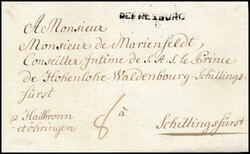 DE PRESBURG
A Monsieur
Monsieur de Marienfeldt,
Conseiller Intime de S. A. S. le Prince
de Hohenlohe Waldenbourg-Schillings-
fürst
p Hailbronn
et öhringen
8 à
Schillingsfürst